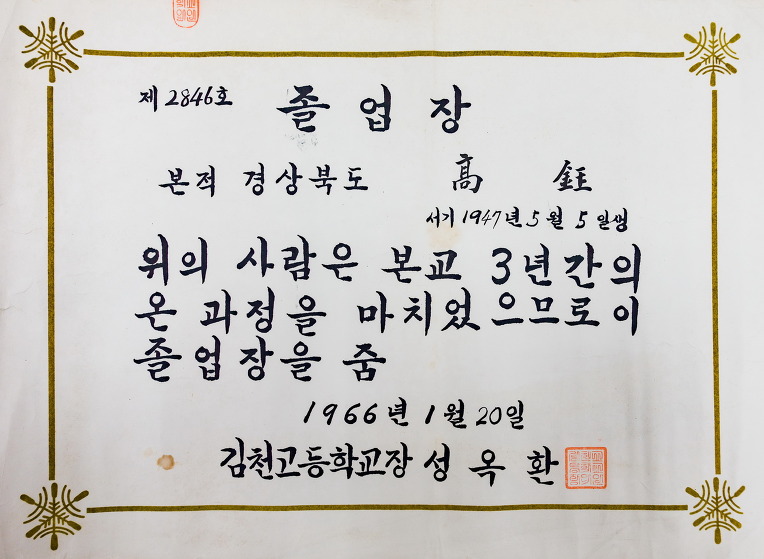 제 2846호 졸업장
본적 경상북도 高 鈺
서기 1947년 5월 5일생
위의 사람은 본교 3년간의
온 과정을 마치었으므로 이
졸업장을 줌
1966년 1월 20일
김천고등학교장 성옥환